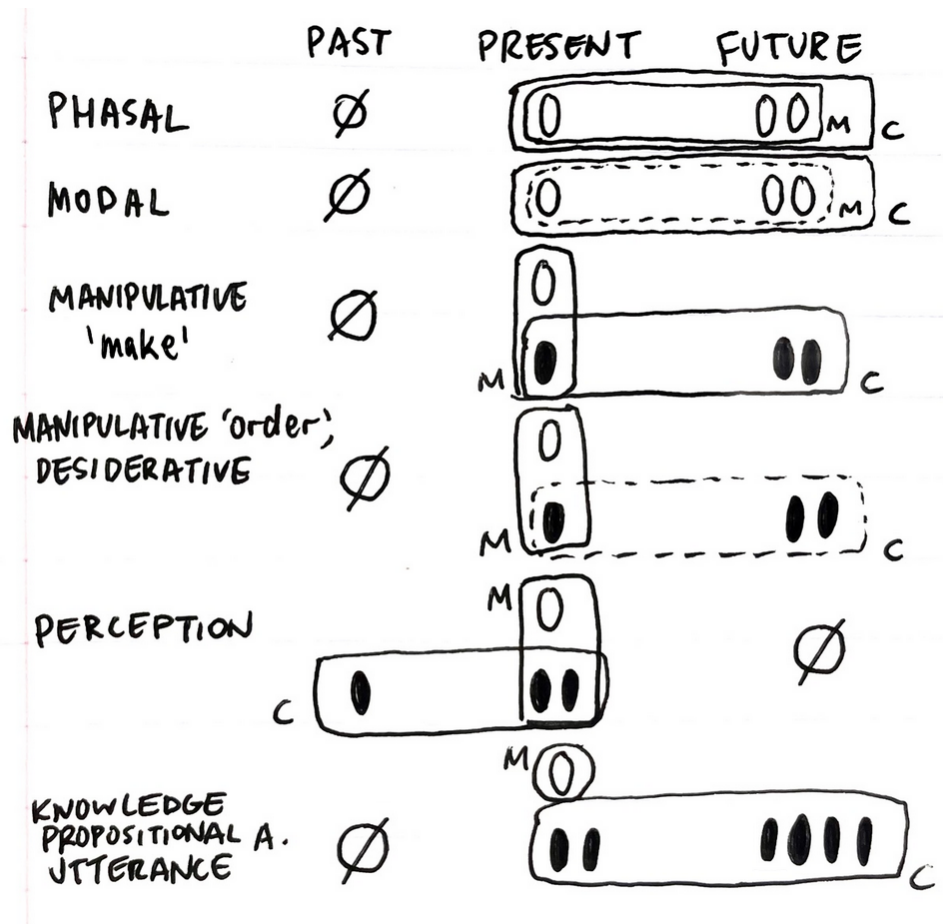 PAST PRESENT FUTURE
PHASAL Ø M C
MODAL Ø M C
MANIPULATIVE
'make' Ø M C
MANIPULATIVE 'order',
DESIDERATIVE Ø M C
M
PERCEPTION Ø
C
M
KNOWLEDGE
PROPOSITIONAL A. Ø
UTTERANCE C